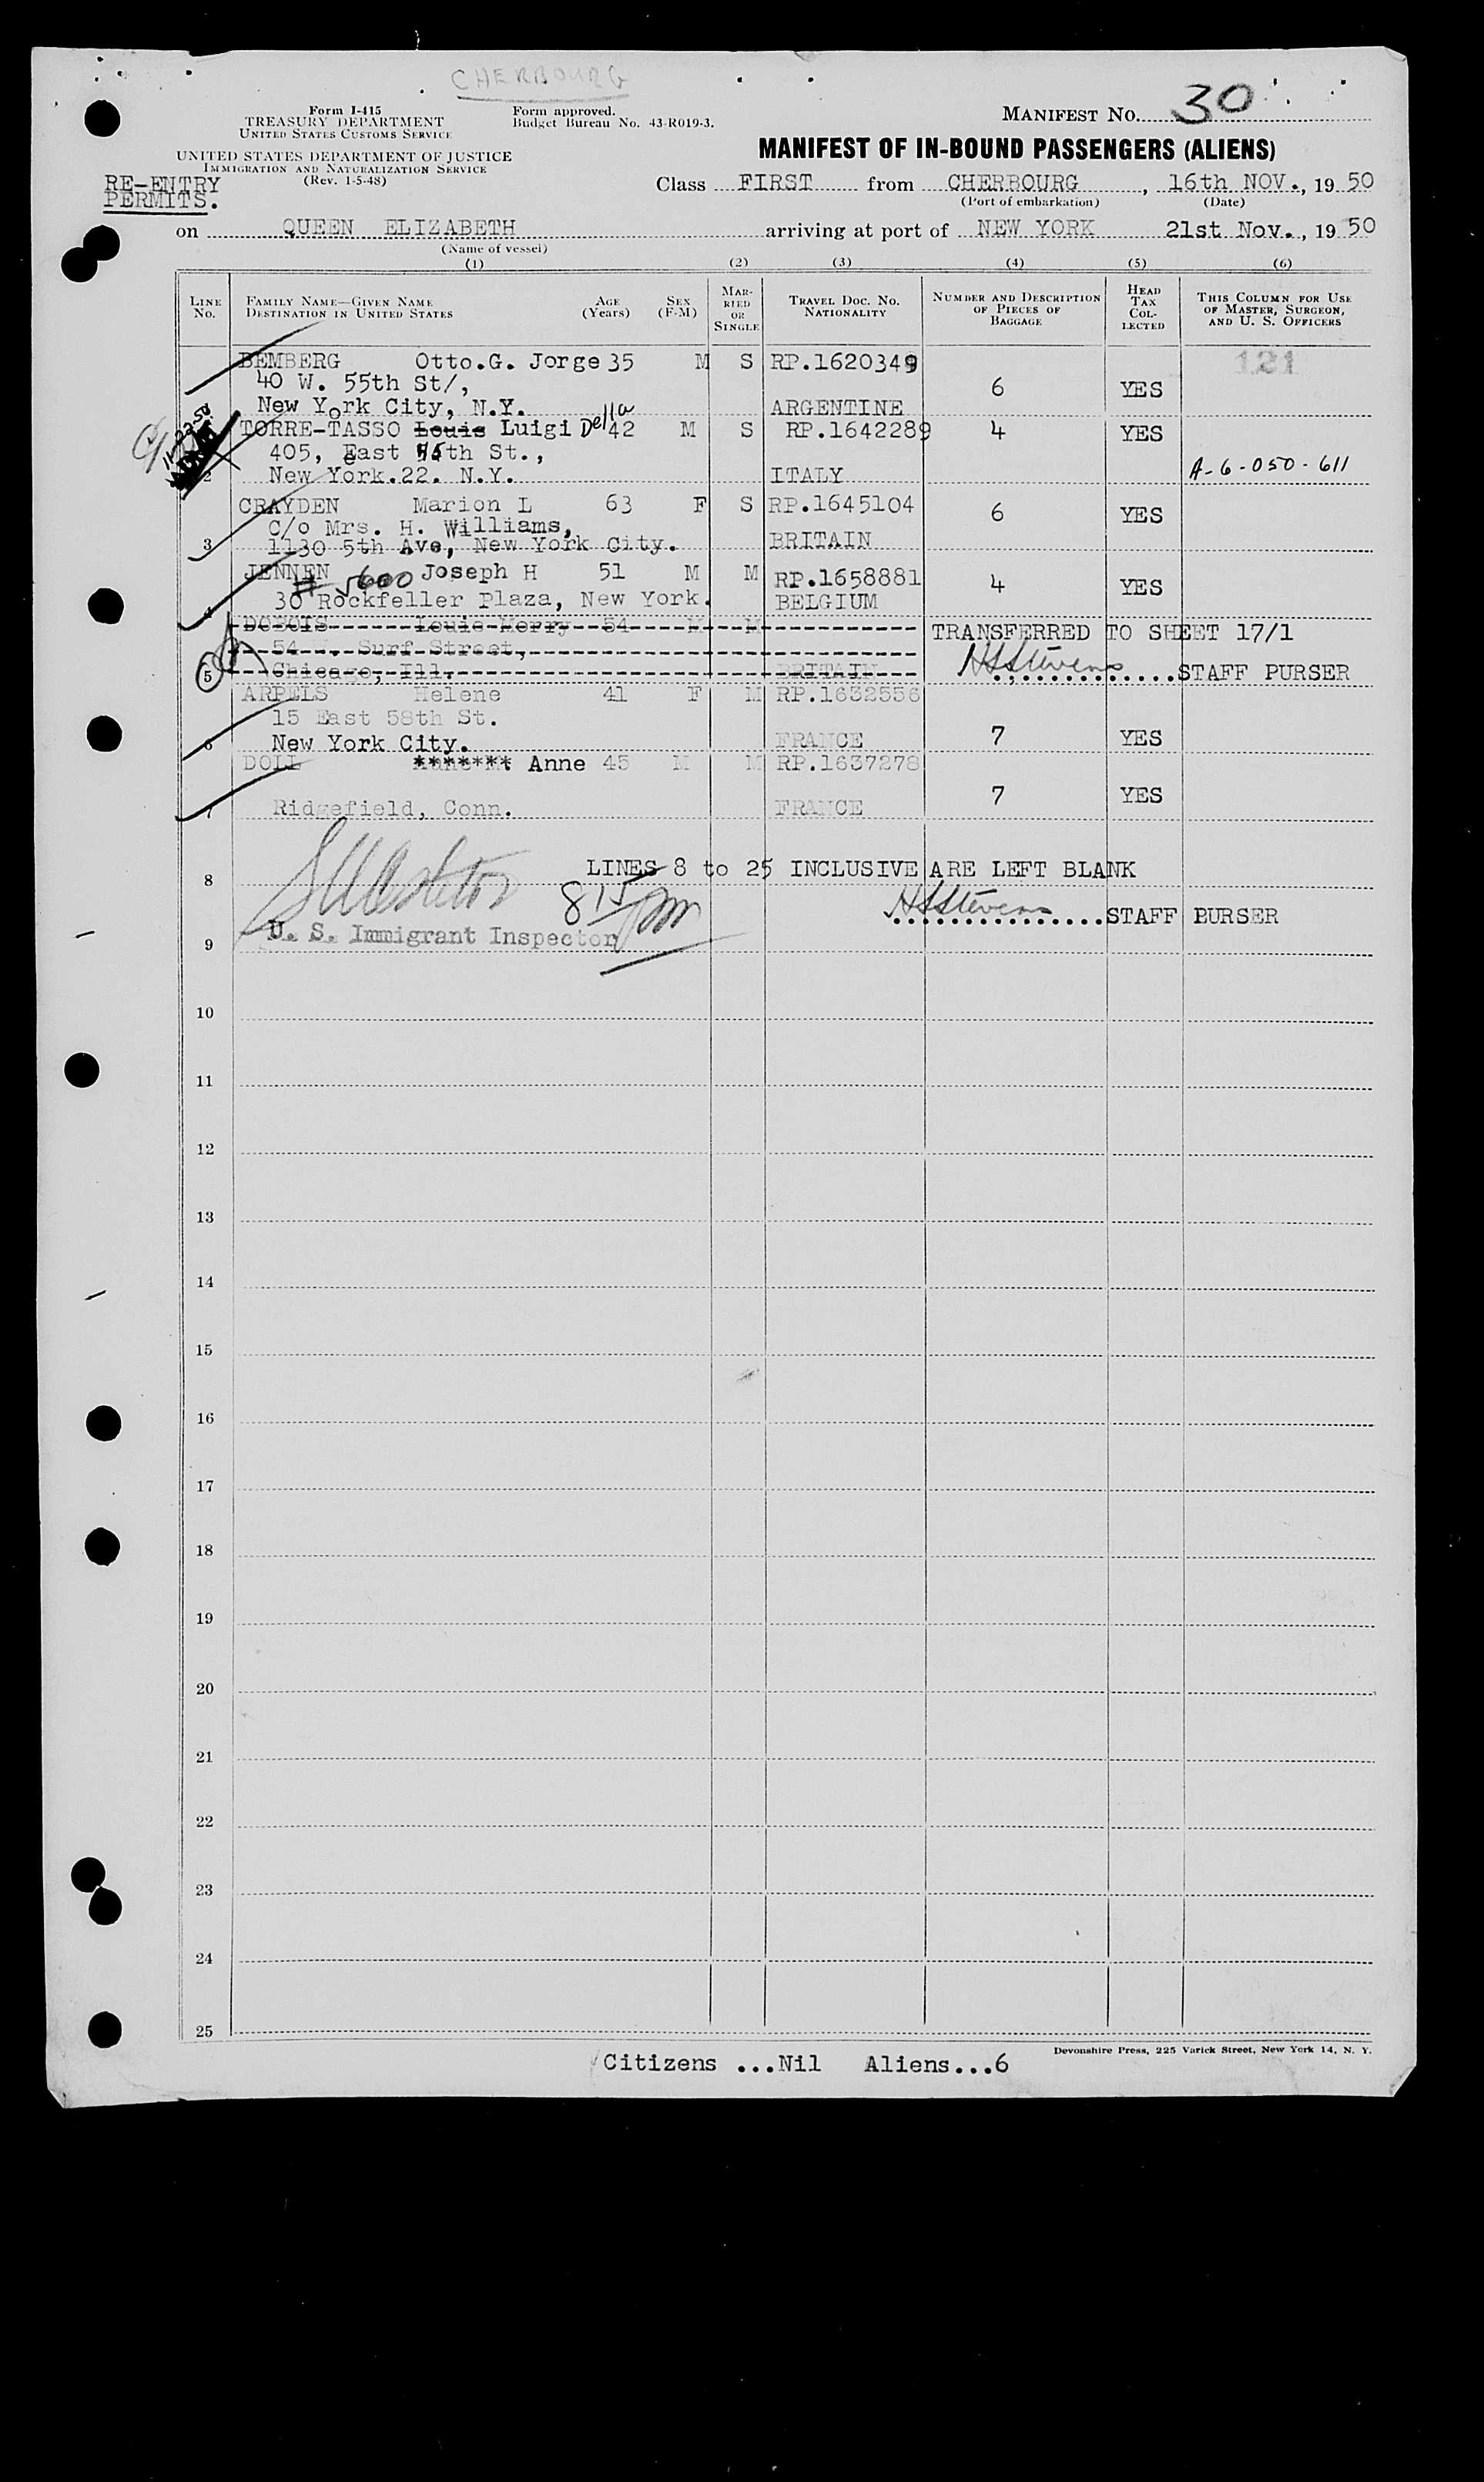 CHERBOURG
Form I-415
TREASURY DEPARTMENT
UNITED STATES CUSTOMS SERVICE
Form approved.
Budget Bureau No. 43-R019-3.
MANIFEST No. 30
UNITED STATES DEPARTMENT OF JUSTICE
IMMIGRATION AND NATURALIZATION SERVICE
(Rev. 1-5-48)
MANIFEST OF IN-BOUND PASSENGERS (ALIENS)
RE-ENTRY
PERMITS.
Class FIRST from CHERBOURG, 16th NOV., 19 50
(Port of embarkation) (Date)
on QUEEN ELIZABETH arriving at port of NEW YORK 21st Nov., 19 50
(Name of vessel)
(1) (2) (3) (4) (5) (6)
LINE No. FAMILY NAME—GIVEN NAME DESTINATION IN UNITED STATES AGE (Years) SEX (F-M) MARRIED OR SINGLE TRAVEL DOC. NO. NATIONALITY NUMBER AND DESCRIPTION OF PIECES OF BAGGAGE HEAD TAX COLLECTED THIS COLUMN FOR USE OF MASTER, SURGEON, AND U. S. OFFICERS
BEMBERG Otto.G. Jorge 35 M S RP.1620349 121
40 W. 55th St/, 6 YES
New York City, N.Y. ARGENTINE
TORRE-TASSO Louis Luigi Della 42 M S RP.1642289 4 YES
405, East 45th St.,
2 New York.22. N.Y. ITALY A-6-050-611
CRAYDEN Marion L 63 F S RP.1645104
C/o Mrs. H. Williams, 6 YES
3 1130 5th Ave, New York City. BRITAIN
JENNEN Joseph H 51 M M RP.1658881 4 YES
# 5600
4 30 Rockfeller Plaza, New York. BELGIUM
DUBOIS Louis Merry 54 M M TRANSFERRED TO SHEET 17/1
54 Surf Street,
5 Chicago, Ill. BRITAIN HSStevens STAFF PURSER
ARPELS Helene 41 F M RP.1632556
15 East 58th St.
6 New York City. FRANCE 7 YES
DOLL ******* Anne 45 M M RP.1637278
7 Ridgefield, Conn. FRANCE 7 YES
8 LINES 8 to 25 INCLUSIVE ARE LEFT BLANK
8 15 pm
HSStevens STAFF PURSER
9 U. S. Immigrant Inspector
10
11
12
13
14
15
16
17
18
19
20
21
22
23
24
25
Devonshire Press, 225 Varick Street, New York 14, N. Y.
Citizens ...Nil Aliens...6